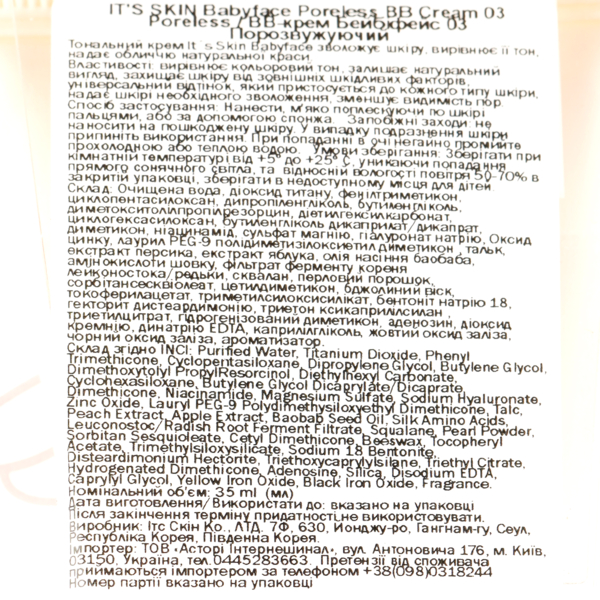 IT'S SKIN Babyface Poreless BB Cream 03
Poreless / BB крем Бейбіфейс 03
Порозвужуючий
Тональний крем It`s Skin Babyface зволожує шкіру, вирівнює її тон,
надає обличчю натуральної краси.
Властивості: вирівнює кольоровий тон, залишає натуральний
вигляд, захищає шкіру від зовнішніх шкідливих факторів,
універсальний відтінок, який пристосується до кожного типу шкіри,
надає шкірі необхідного зволоження, зменшує видимість пор.
Спосіб застосування: Нанести, м'яко поплескуючи по шкірі
пальцями, або за допомогою спонжа. Запобіжні заходи: не
наносити на пошкоджену шкіру. У випадку подразнення шкіри
припиніть використання. При попаданні в очі негайно промийте
прохолодною або теплою водою. Умови зберігання: Зберігати при
кімнатній температурі від +5° до +25° С, уникаючи попадання
прямого сонячного світла, та відносній вологості повітря 50-70% в
закритій упаковці, зберігати в недоступному місця для дітей
Склад: Очищена вода, діоксид титану, фенілтриметікон,
циклопентасилоксан, дипропіленгліколь, бутиленгліколь,
диметокситолілпропілрезорцин, діетилгексилкарбонат,
циклогексасилоксан, бутиленгліколь дикаприлат/дикапрат,
диметикон, ніацинамід, сульфат магнію, гіалуронат натрію, Оксид
цинку, лаурил PEG-9 полідиметизілоксиетил диметикон, тальк,
екстракт персика, екстракт яблука, олія насіння баобаба,
амінокислоти шовку, фільтрат ферменту кореня
лейконостока/редьки, сквалан, перловий порошок,
сорбітансесквіолеат, цетилдиметикон, бджолиний віск,
токоферилацетат, триметилсилоксисилікат, бентоніт натрію 18,
гекторит дистеардимонію, триетон ксикаприлілсилан,
триетилцитрат, гідрогенізований диметикон, аденозин, діоксид
кремнію, динатрію EDTA, каприлілгліколь, жовтий оксид заліза,
чорний оксид заліза, ароматизатор.
Склад згідно INCI: Purified Water, Titanium Dioxide, Phenyl
Trimethicone, Cyclopentasiloxane, Dipropylene Glycol, Butylene Glycol,
Dimethoxytolyl PropylResorcinol, Diethylhexyl Carbonate,
Cyclohexasiloxane, Butylene Glycol Dicaprylate/Dicaprate,
Dimethicone, Niacinamide, Magnesium Sulfate, Sodium Hyaluronate,
Zinc Oxide, Lauryl PEG-9 Polydimethysiloxyethyl Dimethicone, Talc,
Peach Extract, Apple Extract, Baobab Seed Oil, Silk Amino Acids,
Leuconostoc/Radish Root Ferment Filtrate, Squalane, Pearl Powder,
Sorbitan Sesquioleate, Cetyl Dimethicone, Beeswax, Tocopheryl
Acetate, Trimethylsiloxysilicate, Sodium 18 Bentonite,
Disteardimonium Hectorite, Triethoxycaprylylsilane, Triethyl Citrate,
Hydrogenated Dimethicone, Adenosine, Silica, Disodium EDTA,
Caprylyl Glycol, Yellow Iron Oxide, Black Iron Oxide, Fragrance.
Номінальний об'єм: 35 ml (мл)
Дата виготовлення/Використати до: вказано на упаковці
Після закінчення терміну придатності не використовувати.
Виробник: Ітс Скін Ко., ЛТД. 7Ф, 630, Йонджу-ро, Гангнам-гу, Сеул,
Республіка Корея, Південна Корея.
Імпортер: ТОВ «Асторі Інтернешинал», вул. Антоновича 176, м. Київ,
03150, Україна, тел.0445283663. Претензії від споживача
приймаються імпортером за телефоном +38(098)0318244
Номер партії вказано на упаковці